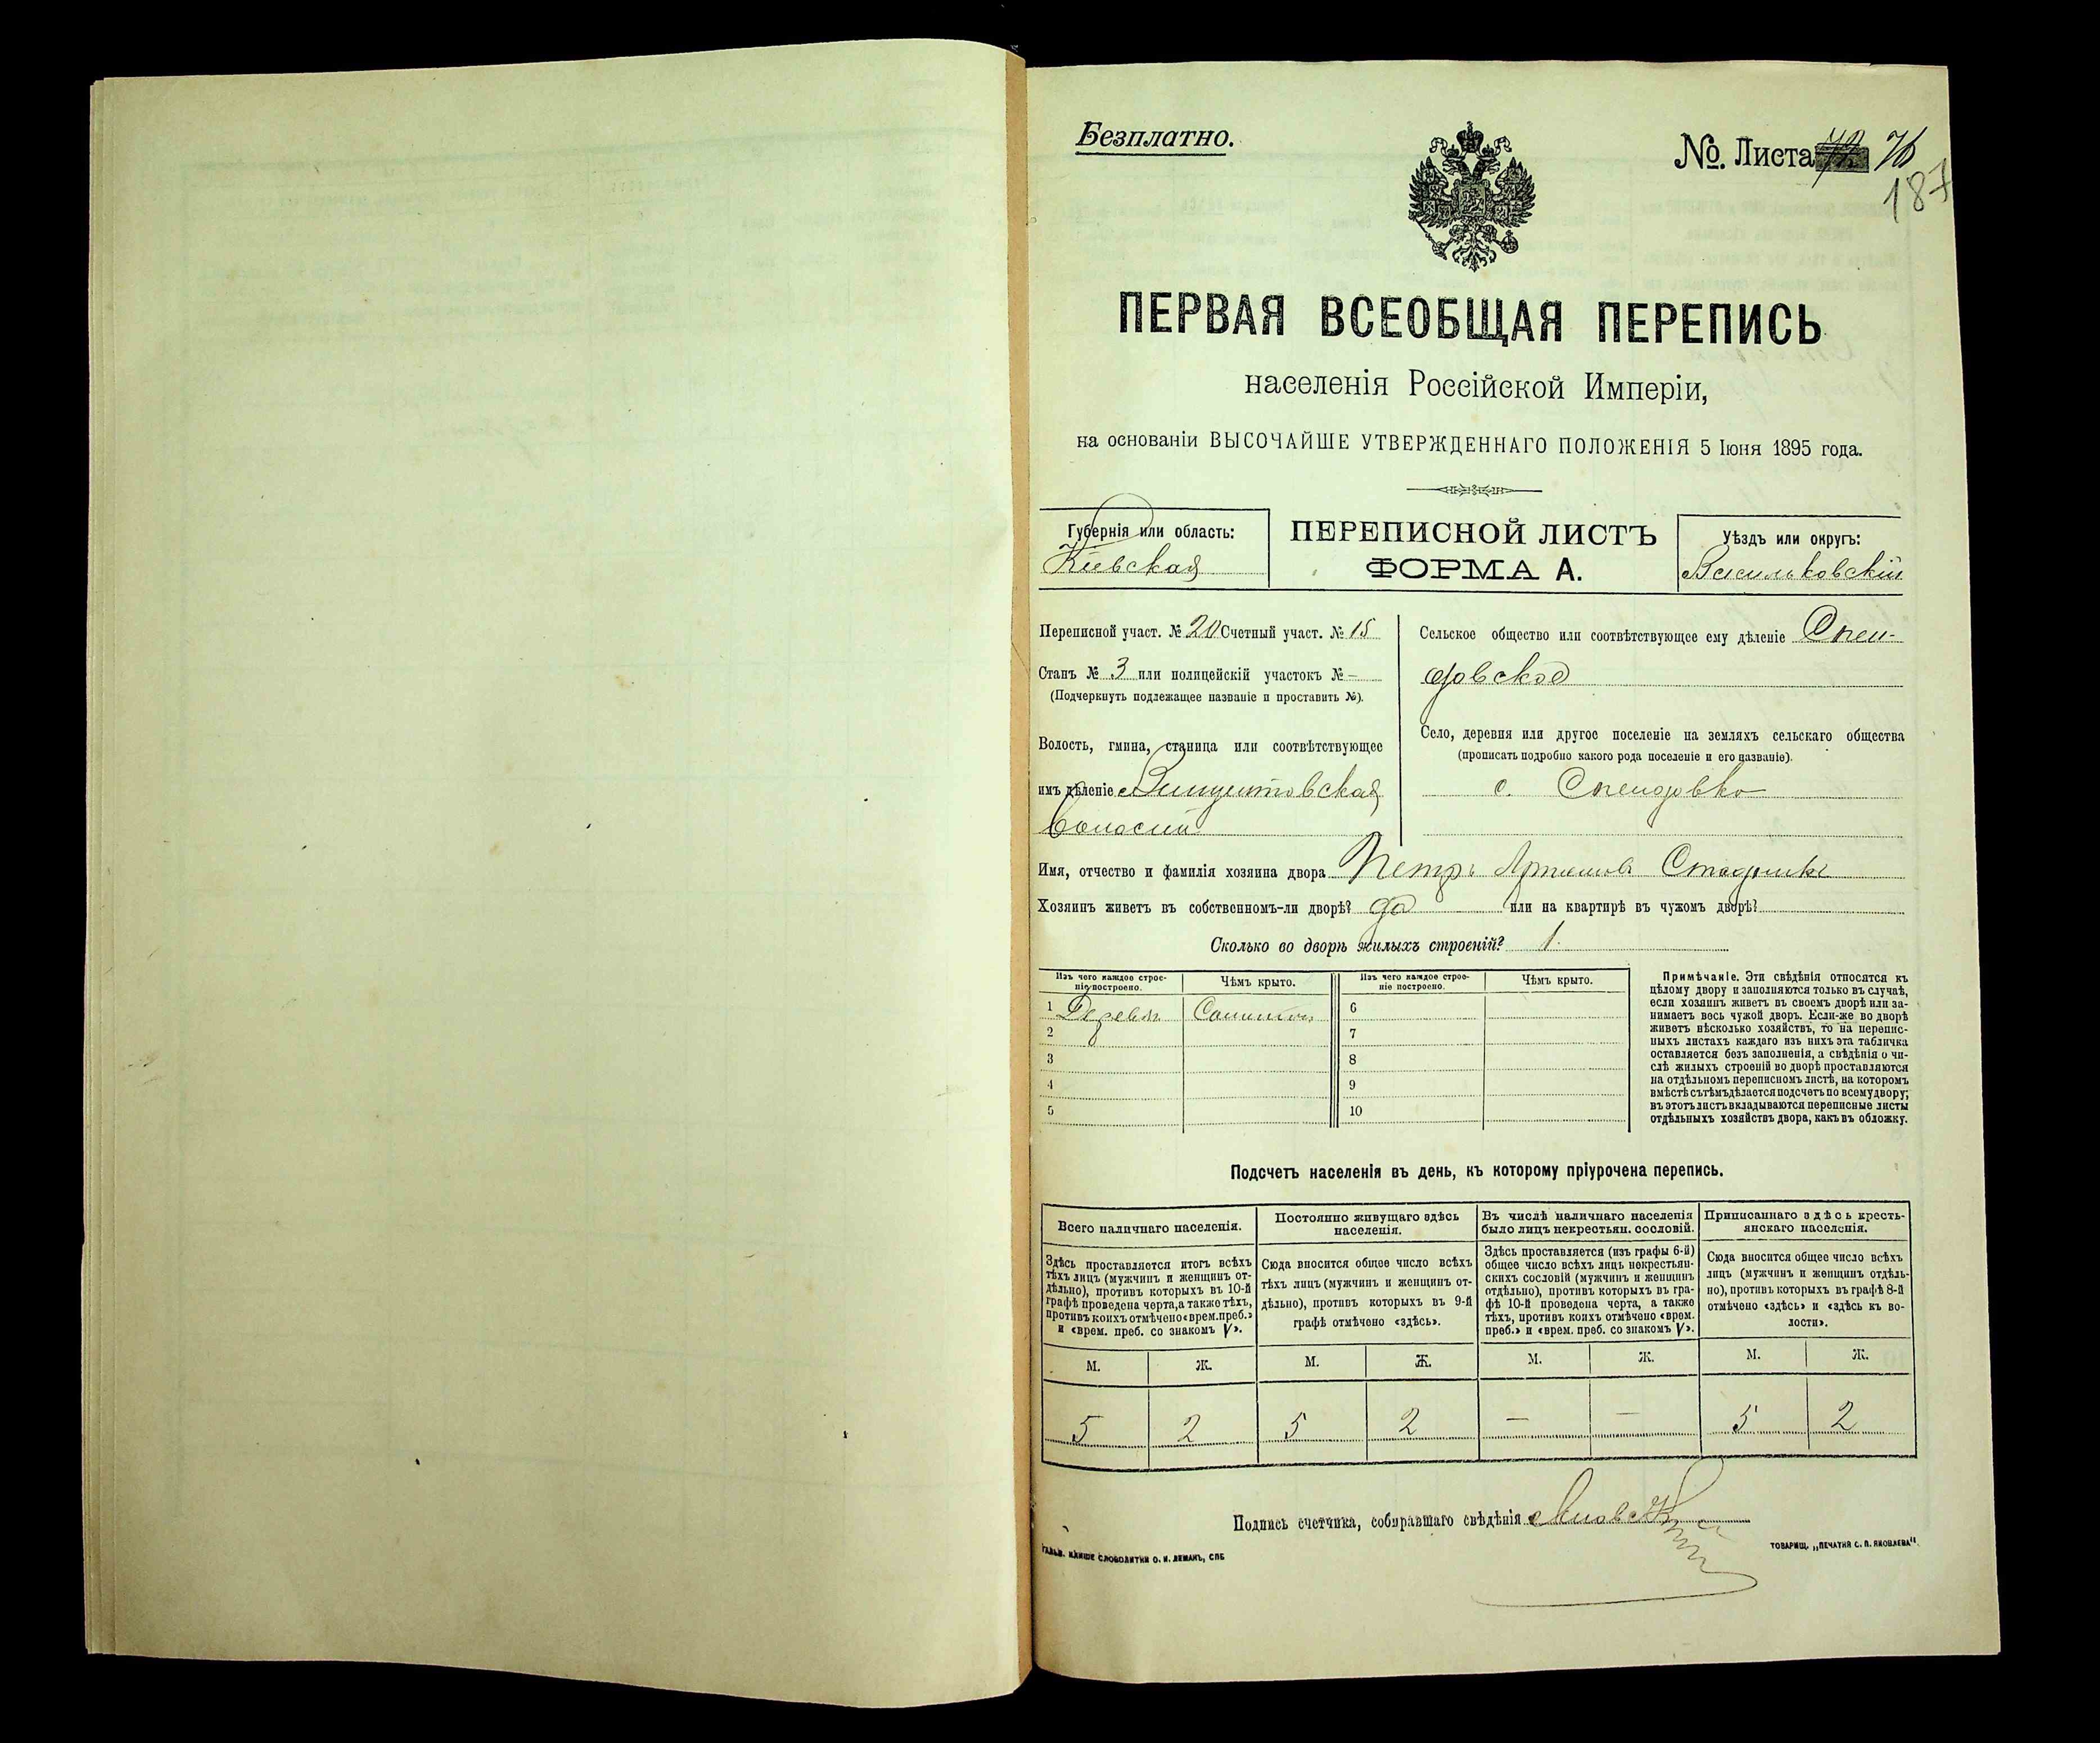 Безплатно.
№. Листа 76
187
ПЕРВАЯ ВСЕОБЩАЯ ПЕРЕПИСЬ
населенія Россійской Имперіи,
на основаніи ВЫСОЧАЙШЕ УТВЕРЖДЕННАГО ПОЛОЖЕНІЯ 5 Іюня 1895 года.
Губернія или область:
Кіевская
ПЕРЕПИСНОЙ ЛИСТЪ
ФОРМА А.
Уѣздъ или округъ:
Васильковскій
Переписной участ. № 20 Счетный участ. № 15
Станъ № 3 или полицейскій участокъ № —
(Подчеркнуть подлежащее названіе и проставить №).
Волость, гмина, станица или соотвѣтствующее
имъ дѣленіе Винцентовская
волость
Сельское общество или соотвѣтствующее ему дѣленіе Спен-
довское
Село, деревня или другое поселеніе на земляхъ сельскаго общества
(прописать подробно какого рода поселеніе и его названіе).
с. Спендовка
Имя, отчество и фамилія хозяина двора Петръ Артемовъ Стадникъ
Хозяинъ живетъ въ собственномъ-ли дворѣ? да или на квартирѣ въ чужомъ дворѣ?
Сколько во дворѣ жилыхъ строеній? 1.
Изъ чего каждое строе-
ніе построено.
Чѣмъ крыто.
Изъ чего каждое строе-
ніе построено.
Чѣмъ крыто.
1 Дерева Соломою 6
2 7
3 8
4 9
5 10
Примѣчаніе. Эти свѣдѣнія относятся къ
цѣлому двору и заполняются только въ случаѣ,
если хозяинъ живетъ въ своемъ дворѣ или за-
нимаетъ весь чужой дворъ. Если-же во дворѣ
живетъ нѣсколько хозяйствъ, то на перепис-
ныхъ листахъ каждаго изъ нихъ эта табличка
оставляется безъ заполненія, а свѣдѣнія о чи-
слѣ жилыхъ строеній во дворѣ проставляются
на отдѣльномъ переписномъ листѣ, на которомъ
вмѣстѣ съ тѣмъ дѣлается подсчетъ по всему двору;
въ этотъ листъ вкладываются переписные листы
отдѣльныхъ хозяйствъ двора, какъ въ обложку.
Подсчетъ населенія въ день, къ которому пріурочена перепись.
Всего наличнаго населенія.
Здѣсь проставляется итогъ всѣхъ
тѣхъ лицъ (мужчинъ и женщинъ от-
дѣльно), противъ которыхъ въ 10-й
графѣ проведена черта, а также тѣхъ,
противъ коихъ отмѣчено «врем. преб.»
и «врем. преб. со знакомъ V».
Постоянно живущаго здѣсь
населенія.
Сюда вносится общее число всѣхъ
тѣхъ лицъ (мужчинъ и женщинъ от-
дѣльно), противъ которыхъ въ 9-й
графѣ отмѣчено «здѣсь».
Въ числѣ наличнаго населенія
было лицъ некрестьян. сословій.
Здѣсь проставляется (изъ графы 6-й)
общее число всѣхъ лицъ некрестьян-
скихъ сословій (мужчинъ и женщинъ
отдѣльно), противъ которыхъ въ гра-
фѣ 10-й проведена черта, а также
тѣхъ, противъ коихъ отмѣчено «врем.
преб.» и «врем. преб. со знакомъ V».
Приписаннаго здѣсь кресть-
янскаго населенія.
Сюда вносится общее число всѣхъ
лицъ (мужчинъ и женщинъ отдѣль-
но), противъ которыхъ въ графѣ 8-й
отмѣчено «здѣсь» и «здѣсь къ во-
лости».
М. Ж. М. Ж. М. Ж. М. Ж.
5 2 5 2 — — 5 2
Подпись счетчика, собиравшаго свѣдѣнія
ГАЛЬВ. КЛИШЕ СЛОВОЛИТНИ О. И. ЛЕМАНЪ, СПБ
ТОВАРИЩ. „ПЕЧАТНЯ С. П. ЯКОВЛЕВА“.